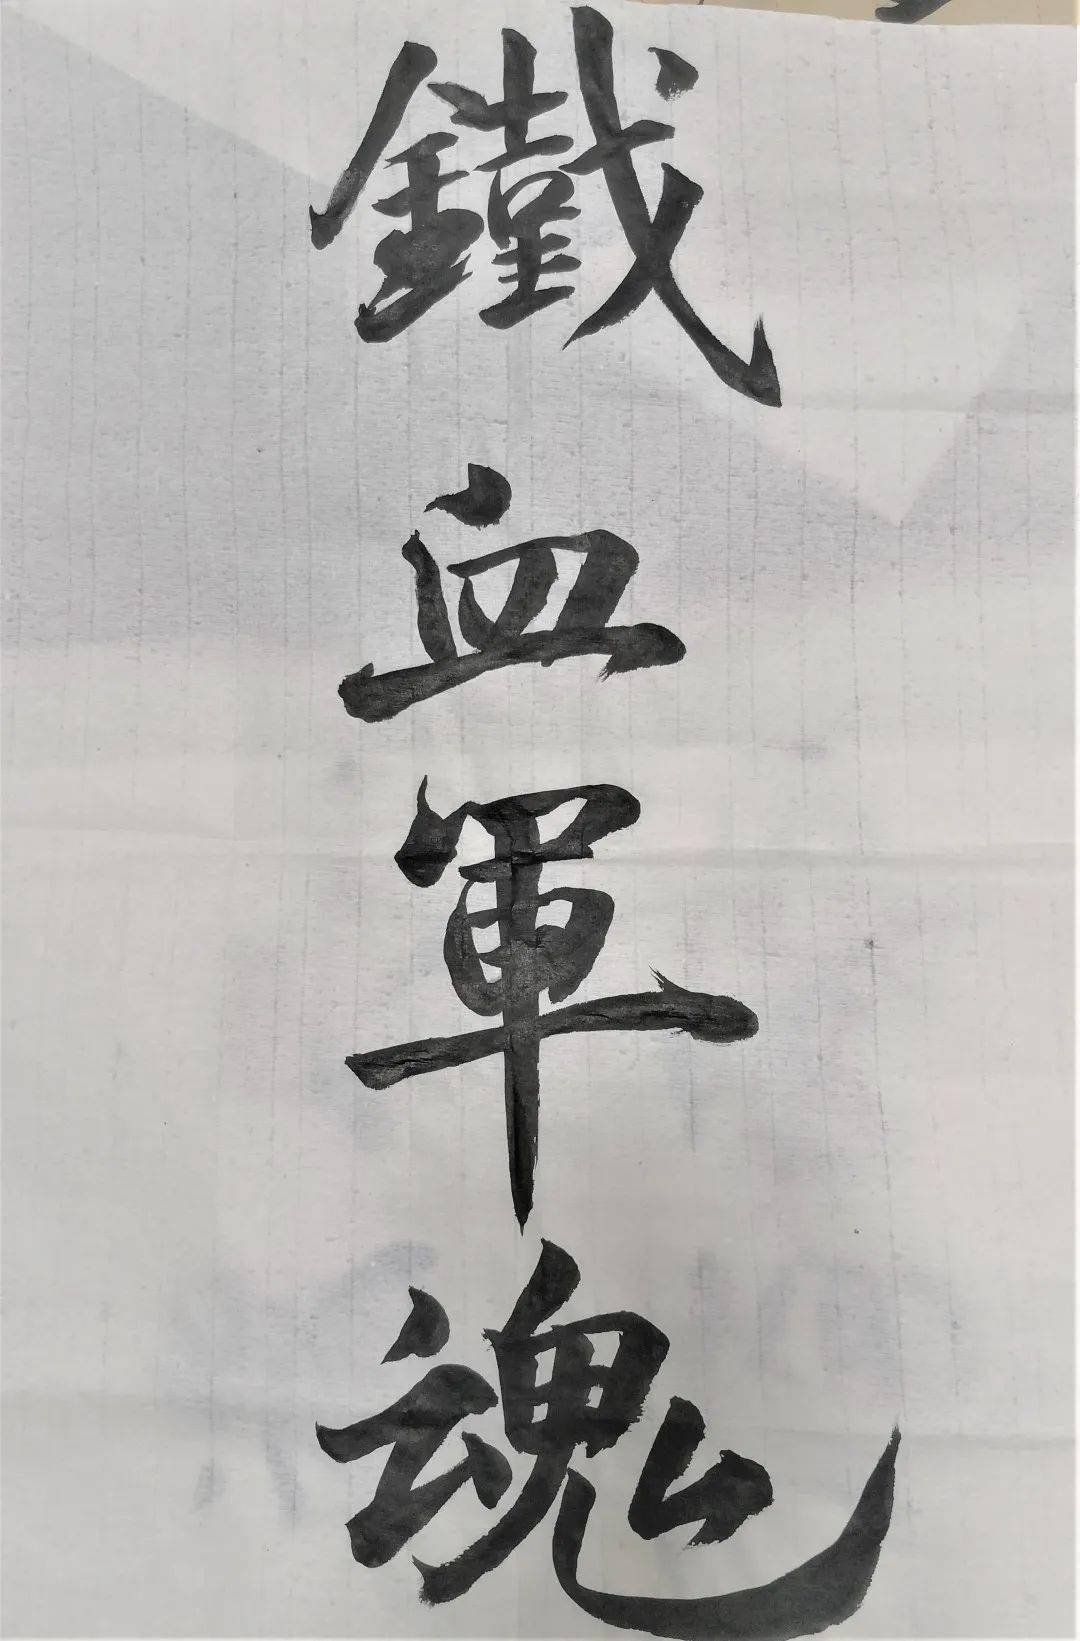 鐵血軍魂